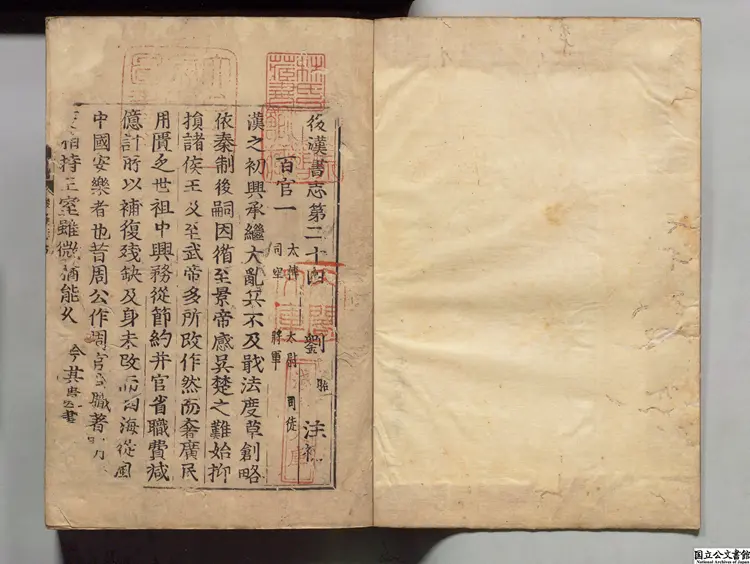 後漢書志第二十四 劉昭 注補
百官一 太傅 太尉 司徒
司空 將軍
漢之初興承繼大亂兵不及戢法度草創略
依秦制後嗣因循至景帝感吳楚之難始抑
損諸侯王及至武帝多所改作然而奢廣民
用匱乏世祖中興務從節約并官省職費減
億計所以補復殘缺及身未改而四海從風
中國安樂者也昔周公作周官官職著明
相持王室雖微猶能久 今其
国立公文書館
National Archives of Japan